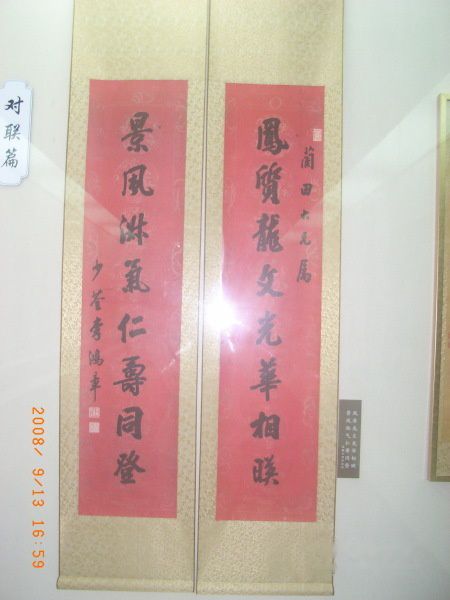 对联篇
蘭田大兄属
鳳質龍文光華相暎
景風淑氣仁壽同登
少荃李鴻章
2008/ 9/13 16:59